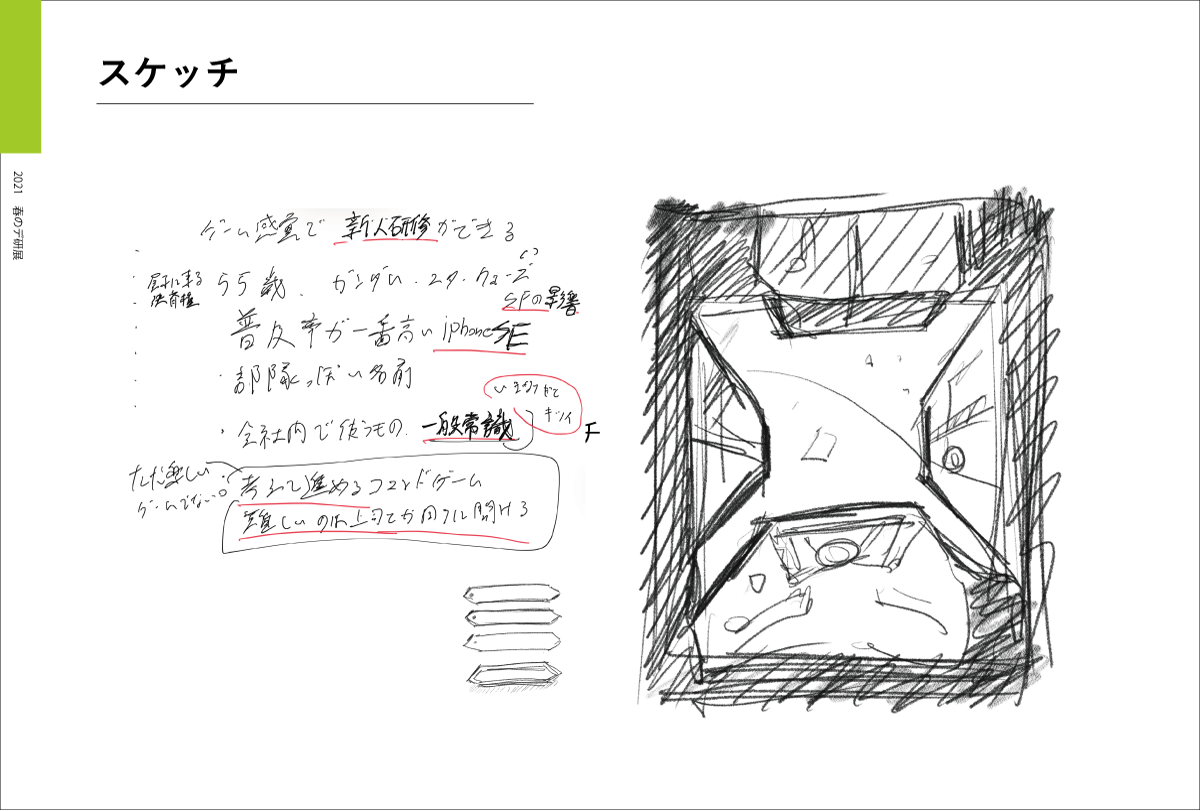 スケッチ
2021 春のデ研展
ゲーム感覚で 新人研修ができる
55歳、ガンダム・スター・ウォーズ
SFの影響
普及率が一番高い iphone SE
・部隊っぽい名前
・会社内で使うもの、一般常識
キツイ
F
ただ楽しい
ゲームでない。
考えて進めるコマンドゲーム
難しいの
開ける